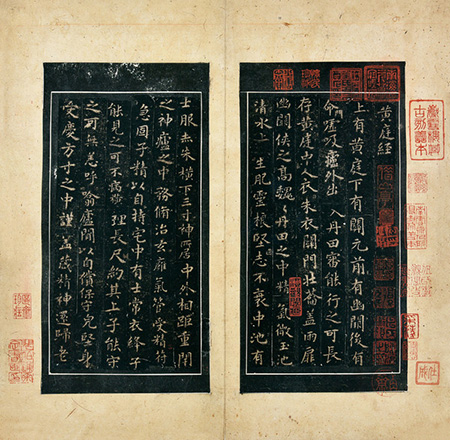 黄庭經
上有黄庭下有關元前有幽闕後有
命噓吸廬外出入丹田審能行之可長
存黄庭中人衣朱衣關門壯籥蓋兩扉
幽闕俠之高巍丹田之中精氣微玉池
清水上生肥靈根堅志不衰中池有
士服赤朱橫下三寸神所居中外相距重閉
之神廬之中務脩治玄廱氣管受精符
急固子精以自持宅中有士常衣絳子
能見之可不病橫理長尺約其上子能守
之可無恙呼噏廬間以自償保守完堅身
受慶方寸之中謹蓋藏精神還歸老